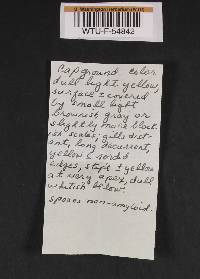 U. Washington Herbarium (WTU)
WTU-F-54842
Cap ground color
dull light yellow,
surface ± covered
by small light
brownish gray or
slightly more black-
ish scales; gills dist-
ant, long decurrent,
yellow c sordid
edges, stipe ± yellow
at very apex, dull
whitish below.
spores non-amyloid.